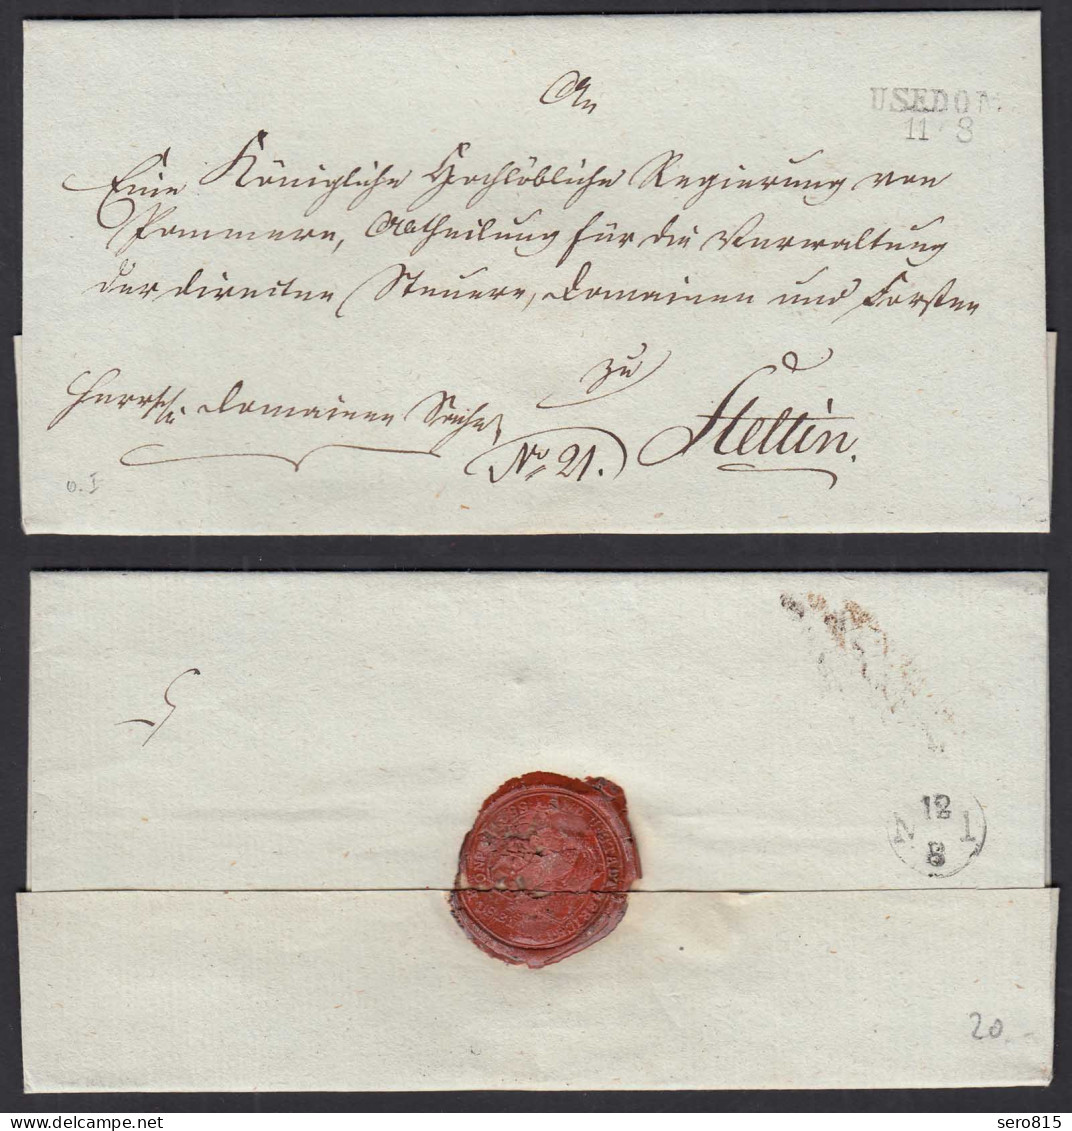 An
USEDOM
11 8
Eine Königliche Hochlöbliche Regierung von
Pommern, Abtheilung für die Verwaltung
der directen Steuern, Domainen und Forsten
zu
Herrsch: Domainen Sache
No 21.
Stettin.
o. I
N 12 I
8
20.-
sero815